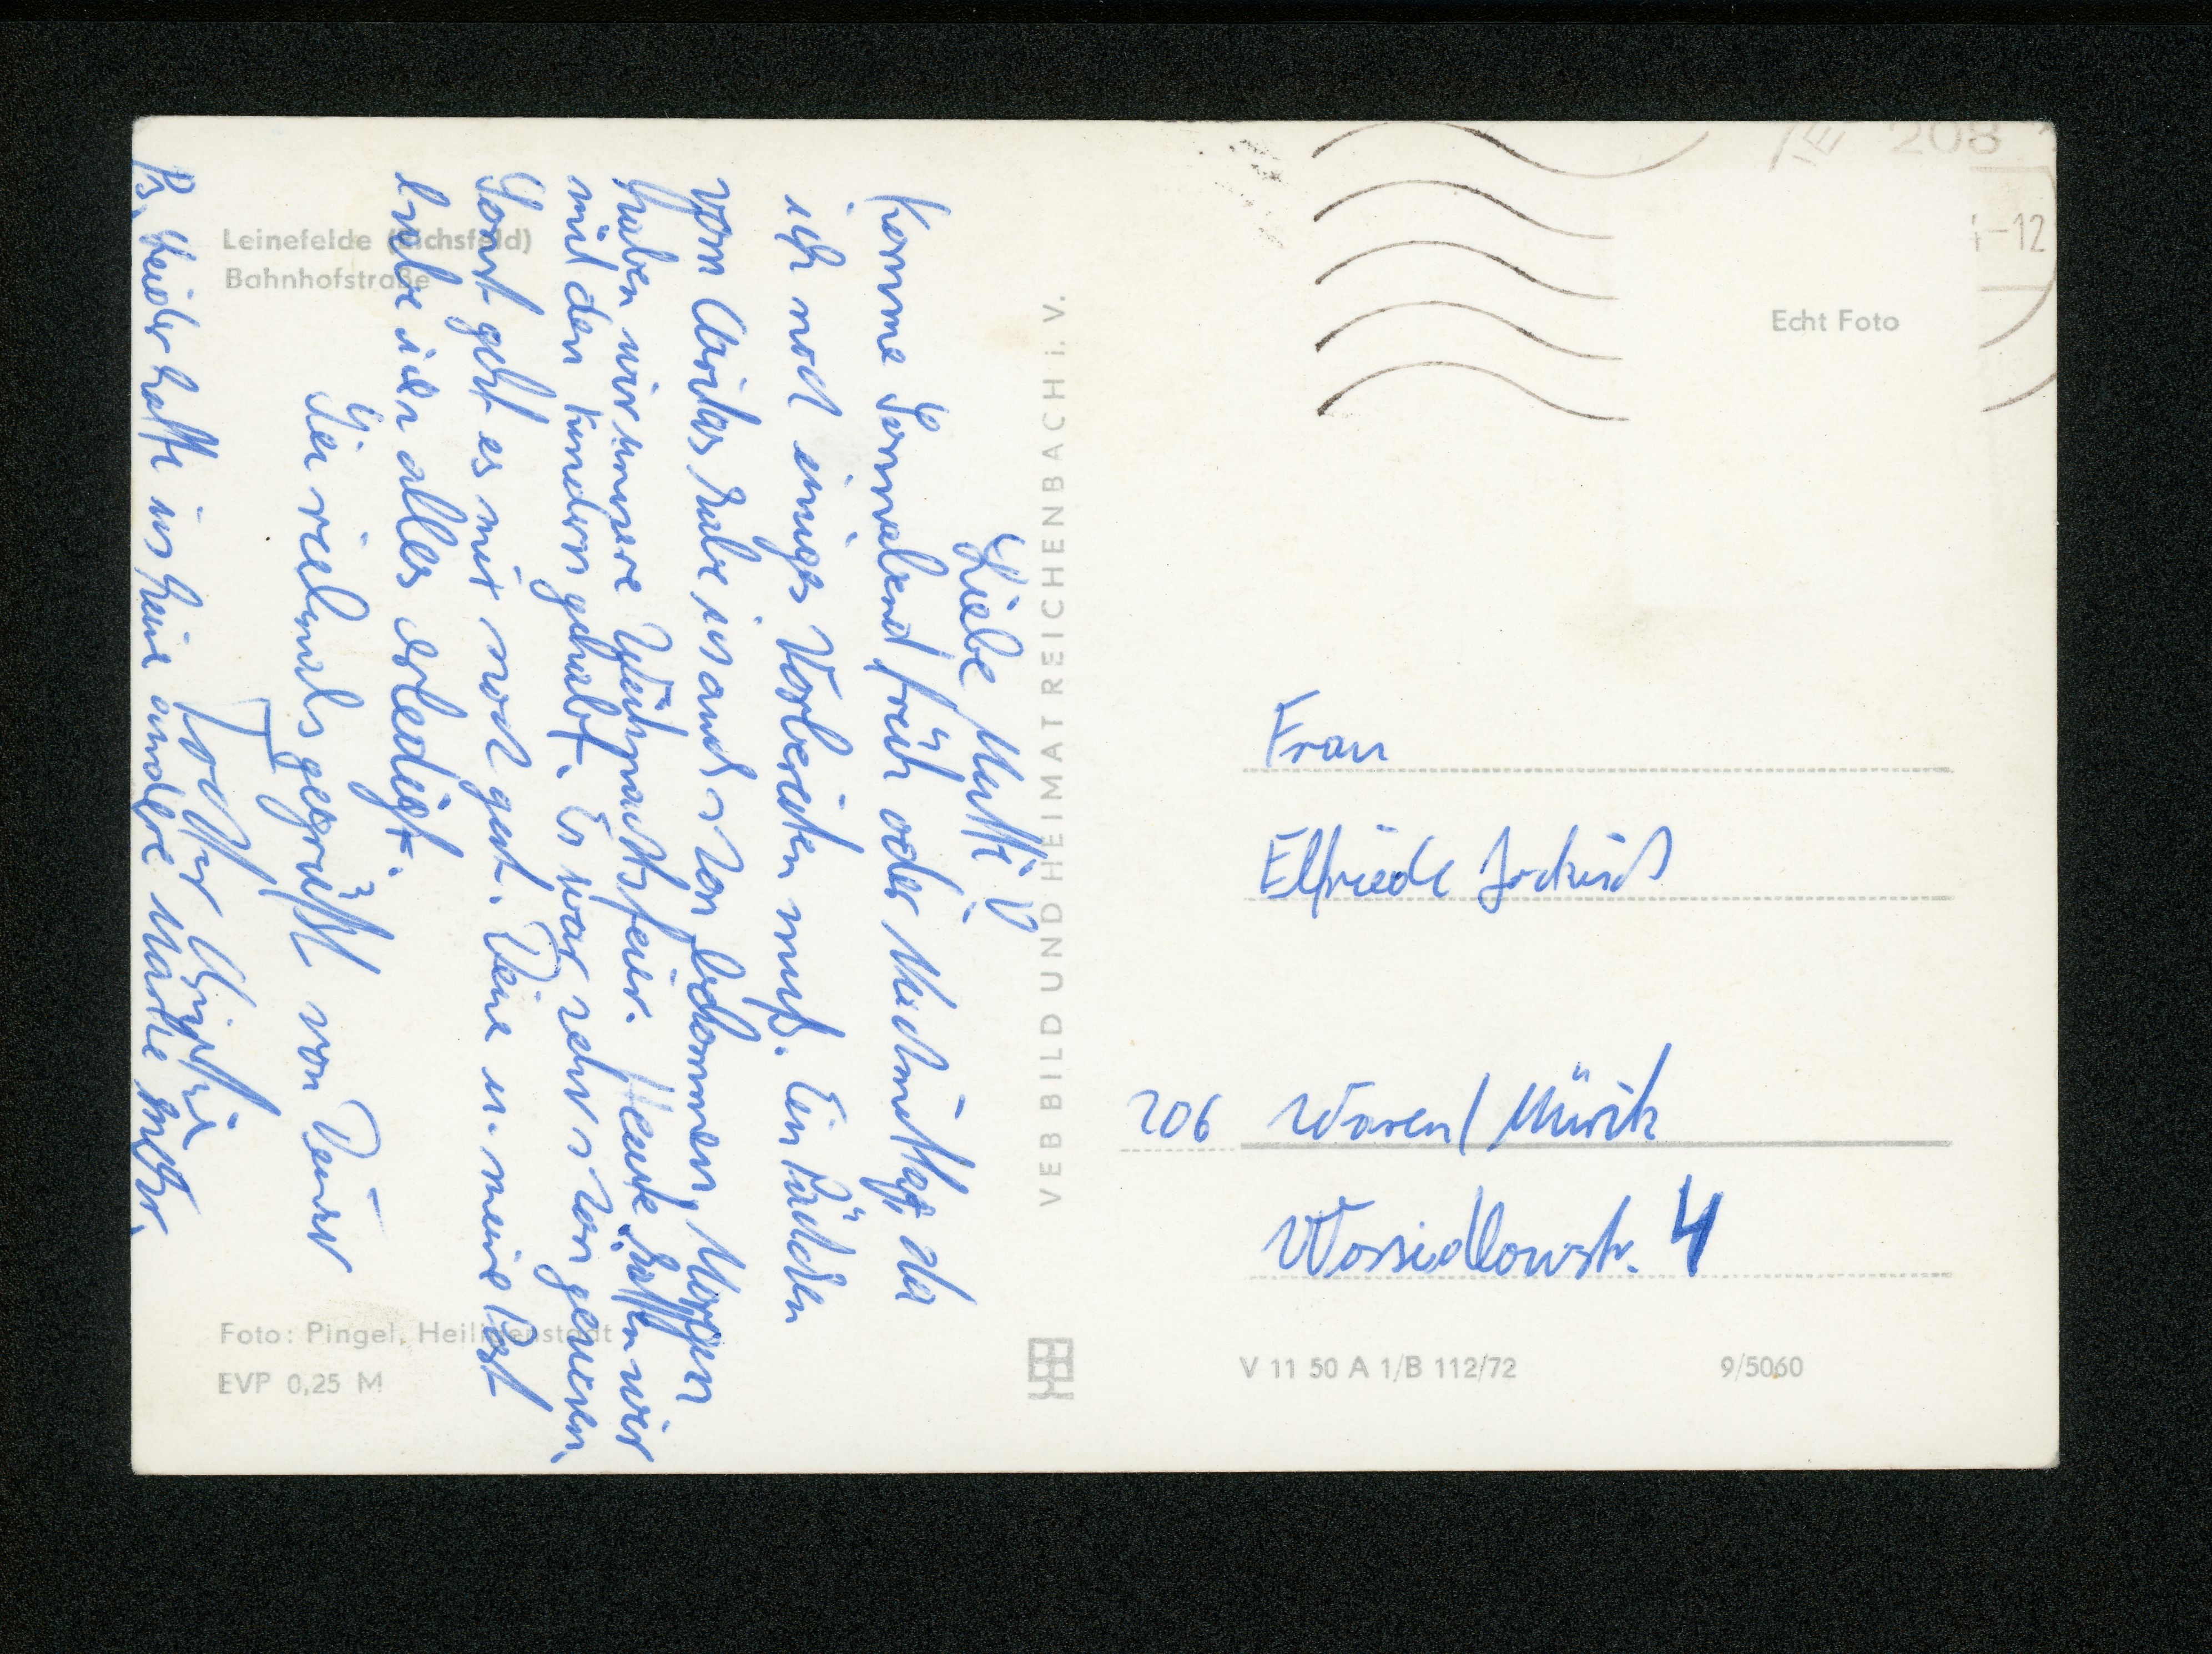 Leinefelde (Eichsfeld)
Bahnhofstraße
Liebe Mutti!
Komme Sonnabend früh oder Nachmittag da
ich noch einiges Vorbereiten muß. Ein Päckchen
vom Caritas habe ich auch schon bekommen, Morgen
haben wir unsere Weihnachtsfeier. Heute hatten wir
mit den Kindern gehabt. Es war sehr schön gewesen,
Sonst geht es mir noch gut. Deine u. meine Post
habe ich alles erledigt.
Sei vielmals gegrüßt von Deiner
Tochter
Ps. Leider hatte ich keine andere Karte mehr.
Foto: Pingel, Heiligenstadt
EVP 0,25 M
VEB BILD UND HEIMAT REICHENBACH i. V.
208
-12
Echt Foto
Frau
Elfriede
206 Waren/Müritz
Wossidlowstr. 4
V 11 50 A 1/B 112/72
9/5060